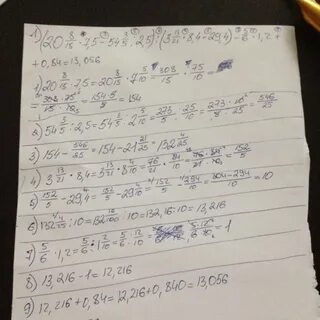 1) (20 8/15 · 7,5 − 54 3/5 : 2,5) : (3 13/21 · 8,4 − 29,4) − 5/6 · 1,2 +
+ 0,84 = 13,056
1) 20 8/15 · 7,5 = 20 8/15 · 7 5/10 = 308/15 · 75/10 =
= 308 · 75 / 15 · 10 = 154 · 5 / 5 = 154
2) 54 3/5 : 2,5 = 54 3/5 : 2 5/10 = 273/5 : 25/10 = 273 · 10 / 5 · 25 = 546/25
3) 154 − 546/25 = 154 − 21 21/25 = 132 4/25
4) 3 13/21 · 8,4 = 3 13/21 · 8 4/10 = 76/21 · 84/10 = 152/5
5) 152/5 − 29,4 = 152/5 − 29 4/10 = 152/5 − 294/10 = 304 − 294 / 10 = 10
6) 132 4/25 : 10 = 132 16/100 : 10 = 132,16 : 10 = 13,216
7) 5/6 · 1,2 = 5/6 · 1 2/10 = 5/6 · 12/10 = 5 · 12 / 6 · 10 = 1
8) 13,216 − 1 = 12,216
9) 12,216 + 0,84 = 12,216 + 0,840 = 13,056